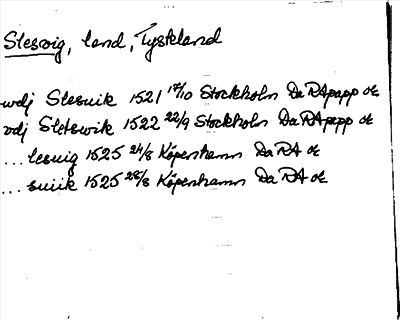 Slesvig, land, Tyskland
wdj Slesuik 1521 17/10 Stockholm Da RApapp or
vdj Sletswik 1522 22/9 Stockholm Da RApapp or
... lesuig 1525 24/8 Köpenhamn Da RA or
... suiik 1525 28/8 Köpenhamn Da RA or